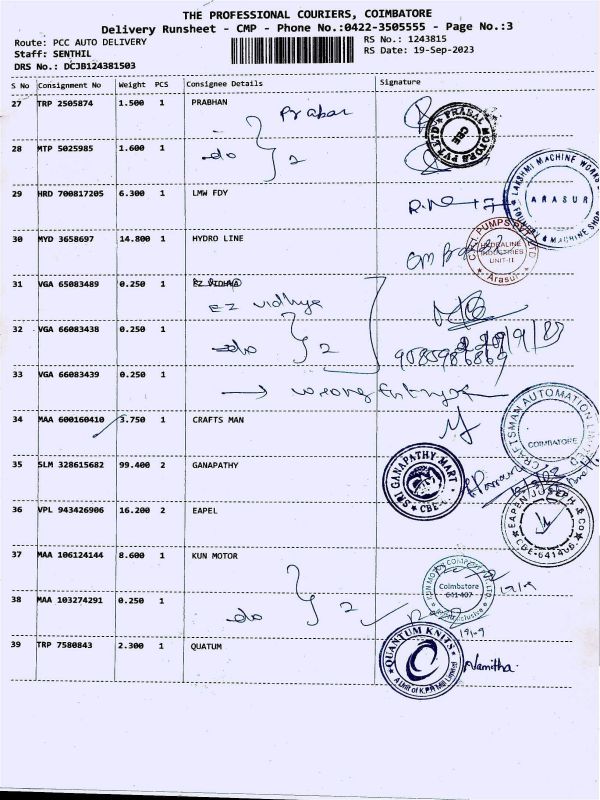 THE PROFESSIONAL COURIERS, COIMBATORE
Delivery Runsheet - CMP - Phone No.:0422-3505555 - Page No.:3
Route: PCC AUTO DELIVERY
RS No.: 1243815
Staff: SENTHIL
RS Date: 19-Sep-2023
DRS No.: DCJB124381503
S No Consignment No Weight PCS Consignee Details Signature
27 TRP 2505874 1.500 1 PRABHAN
Prabar
PRABAL MOTORS PVT LTD CBE
28 MTP 5025985 1.600 1
do } 2
29 HRD 700817205 6.300 1 LMW FDY
LAKSHMI MACHINE WORKS
ARASUR
FOUNDRY & MACHINE SHOP
30 MYD 3658697 14.800 1 HYDRO LINE
PUMPS PVT LTD
INDUSTRIES
UNIT-II
Arasur
31 VGA 65083489 0.250 1
EZ vidhya
32 VGA 66083438 0.250 1
do } 2
33 VGA 66083439 0.250 1
wrong Entry
34 MAA 600160410 3.750 1 CRAFTS MAN
CRAFTSMAN AUTOMATION LIMITED
COIMBATORE
35 SLM 328615682 99.400 2 GANAPATHY
SRI GANAPATHY-MART
CBE
36 VPL 943426906 16.200 2 EAPEL
EAPEN JOSEPH & Co
CBE-641406.
37 MAA 106124144 8.600 1 KUN MOTOR
Coimbatore
641 407
38 MAA 103274291 0.250 1
do } 2
39 TRP 7580843 2.300 1 QUATUM
QUANTUM KNITS
A Unit of K.P.R Mill Limited
Namitha.